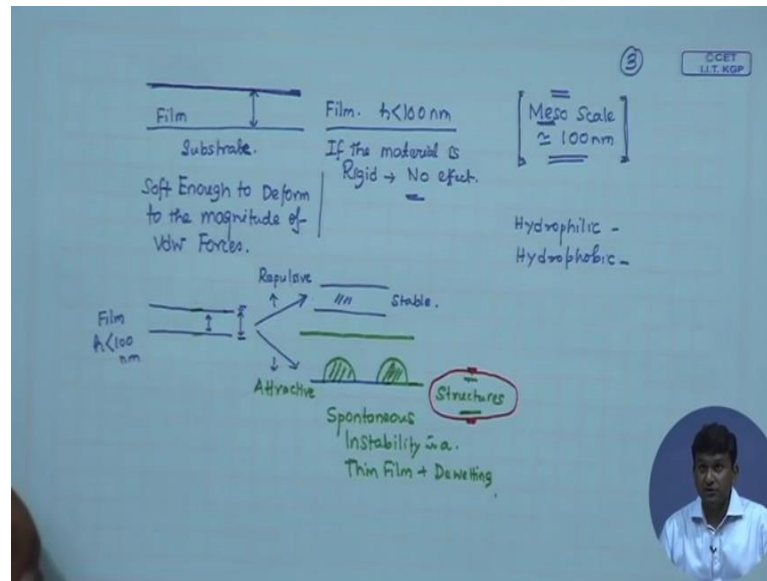 3
©CET
I.I.T. KGP
Film
Substrate.
Film. h<100nm
If the material is
Rigid → No efect.
Meso Scale
≃ 100nm
Soft Enough to Deform
to the magnitude of
VdW Forces.
Hydrophilic -
Hydrophobic -
Film
h<100
nm
Repulsive
Stable.
Attractive
Structures
Spontaneous
Instability in a.
Thin Film + Dewetting.